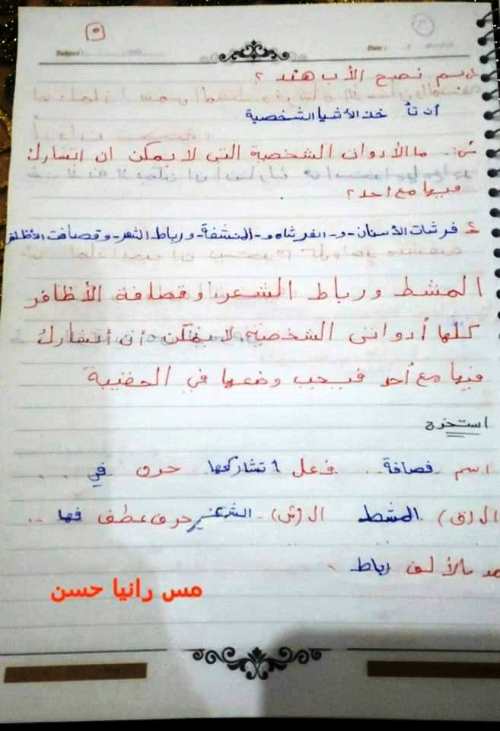 ٥
Date:
بم نصح الأب هند ؟
أن تأخذ الأشيا الشخصية
س: ما الأدوات الشخصية التي لا يمكن ان اتشارك
فيها مع احد؟
فرشات الأسنان - و - الفرشاه و - المنشفة - و رباط الشعر - و قصافت الأظافر
المشط ورباط الشعر وقصافة الأظافر
كلها أدواتى الشخصية، لا يمكن أن أتشارك
فيها مع أحد فيجب وضعها في الحقيبة
استخرج
اسم قصافة . فعل اتشاركها حرف في ...
ال (ق) المشط ال (ش) الشعر حرف عطف فها ..
مد بالألف رباط .
مس رانيا حسن